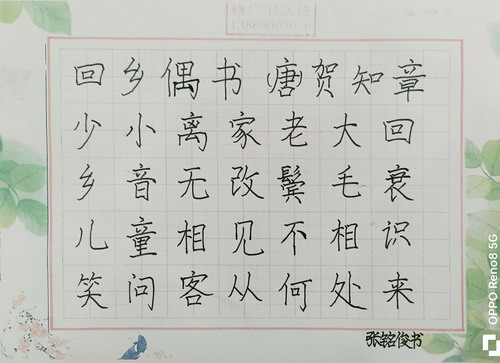 回乡偶书 唐贺知章
少小离家老大回
乡音无改鬓毛衰
儿童相见不相识
笑问客从何处来
张铭俊书
OPPO Reno8 5G